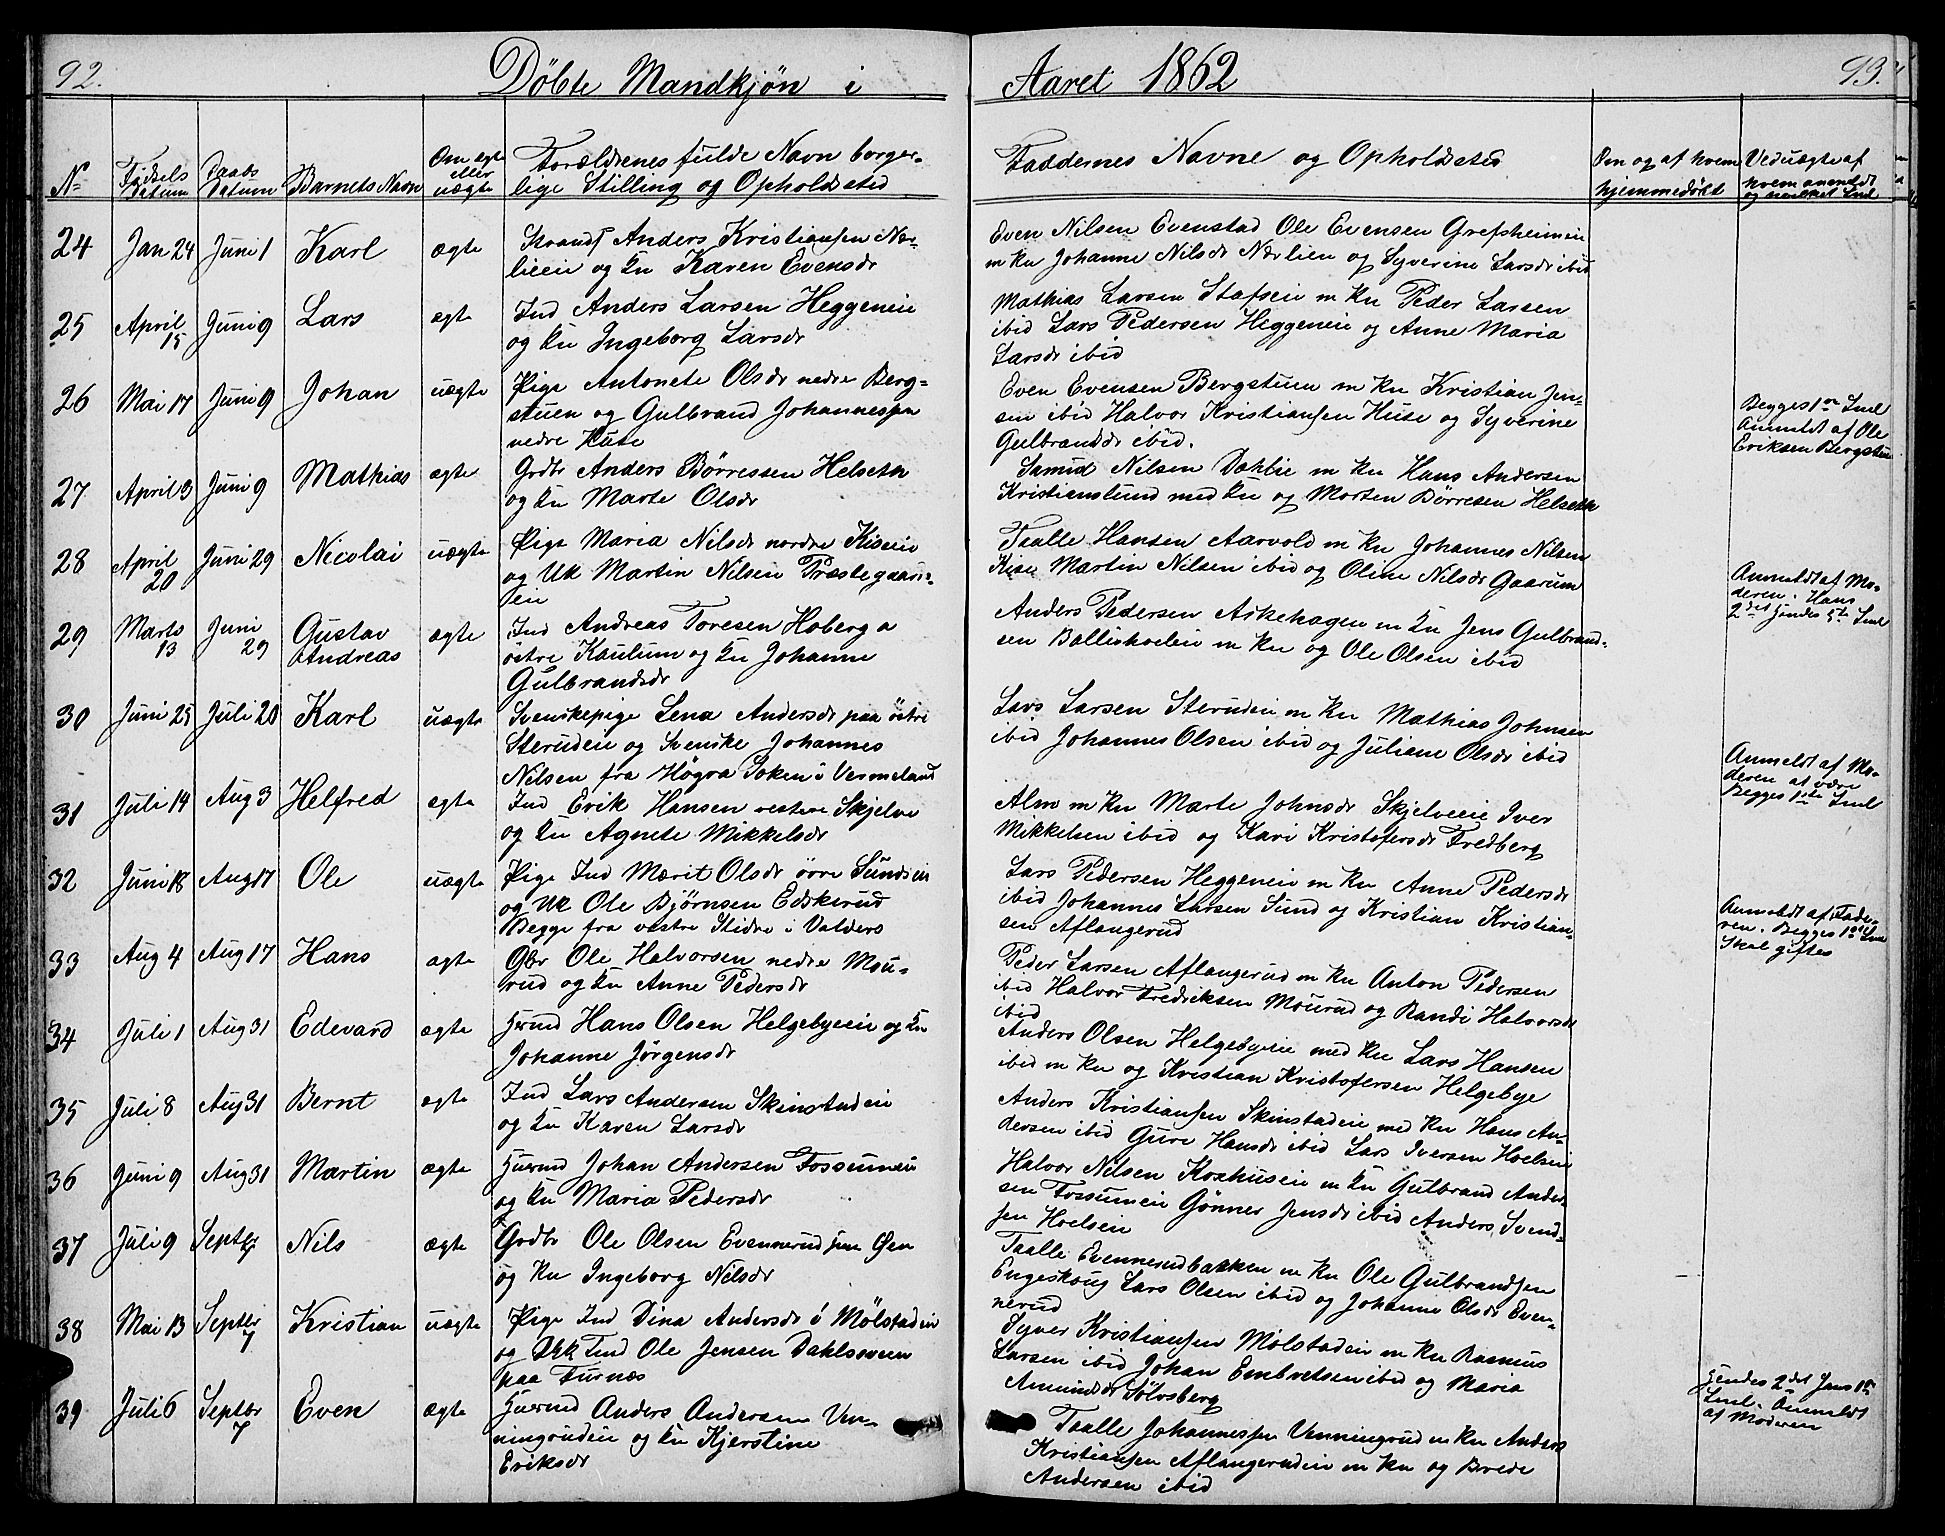 92.
Döbte Mandkjøn i Aaret 1862
93.
No
Födsels Datum
Daabs Datum
Barnets Navn
Om ægte eller uægte
Forældrenes fulde Navn borger-
lige Stilling og Opholdsted
Faddernes Navne og Opholdsted
Om og af hvem
hjemmedöbt
Ved uægte af
hvem anmeldt
24 Jan 24 Juni 1 Karl ægte
Anders Kristiansen Nær-
lieeie og Ku Karen Evensdr
Even Nilsen Evenstad Ole Evensen Grefsheimeie
m Ku Johanne Nilsdr Nærlien og Syverine Larsdr ibid
25 April 15 Juni 9 Lars ægte
Ind Anders Larsen Heggeneie
og Ku Ingeborg Larsdr
Mathias Larsen Stafseie m Ku Peder Larsen
ibid Lars Pedersen Heggeneie og Anne Maria
Larsdr ibid
26 Mai 17 Juni 9 Johan uægte
Pige Antonete Olsdr nedre Berg-
stuen og Gulbrand Johannessen
nedre Huse
Even Evensen Bergstuen m Ku Kristian Jen-
sen ibid Halvor Kristiansen Huse og Syverine
Gulbrandsdr ibid.
Begges 1ste Leiel
Anmeldt af Ole
Eriksen Bergstuen
27 April 3 Juni 9 Mathias ægte
Grdbr Anders Börressen Helseth
og Ku Marte Olsdr
Nilsen Dæhlie m Ku Hans Andersen
Kristianslund med Ku og Morten Börresen Helseth
28 April 20 Juni 29 Nicolai uægte
Pige Maria Nilsdr nordre Kiseeie
og Uk Martin Nilsen Præstegaars-
eie
Taalle Hansen Aarvold m Ku Johannes Nilsen
Kise Martin Nilsen ibid og Oline Nilsdr Gaarum
Anmeldt af Mo-
deren. Hans
2det Hendes 5te
29 Marts 13 Juni 29 Gustav Andreas ægte
Ind Andreas Toresen Hoberg a
östre Kaulum og Ku Johanne
Gulbrandsdr
Anders Pedersen Askehagen m Ku Jens Gulbrand-
sen Ballishoeleie m Ku og Ole Olsen ibid
30 Juni 25 Juli 20 Karl uægte
Svenskepige Lena Andersdr paa östre
Sterudeie og Svenske Johannes
Nilsen fra Högra Soken i Vermeland
Lars Larsen Sterudeie m Ku Mathias Johnsen
ibid Johannes Olsen ibid og Juliane Olsdr ibid
Anmeldt af Mo-
deren at være
Begges 1ste
31 Juli 14 Aug 3 Helfred ægte
Ind Erik Hansen vestere Skjelve
og Ku Agnete Mikkelsdr
Alm m Ku Marte Johnsdr Skjelveeie Iver
Mikkelsen ibid og Kari Kristofersdr Fredberg
32 Juni 18 Aug 17 Ole uægte
Pige Ind Marit Olsdr övre Sundeie
og Uk Ole Björnsen Edskerud
Begge fra vestre Slidre i Valders
Lars Pedersen Heggeneie m Ku Anne Pedersdr
ibid Johannes Larsen Sund og Kristian Kristian-
sen Aflangerud
Anmeldt af Fade-
ren. Begges 1ste
Skal giftes
33 Aug 4 Aug 17 Hans ægte
Gbr Ole Halvorsen nedre Mou-
rud og Ku Anne Pedersdr
Peder Larsen Aflangerud m Ku Anton Pedersen
ibid Halvor Fredriksen Mourud og Randi Halvorsdr
ibid
34 Juli 1 Aug 31 Edevard ægte
Husmd Hans Olsen Helgebyeeie og Ku
Johanne Jörgensdr
Anders Olsen Helgebyeeie med Ku Lars Hansen
ibid m Ku og Kristian Kristofersen Helgebye
35 Juli 8 Aug 31 Bernt ægte
Ind Lars Andersen Skinstadeie
og Ku Karen Larsdr
Anders Kristiansen Skinstadeie med Ku Hans An-
dersen ibid Guri Hansdr ibid Lars Iversen Hoelseie
36 Juni 9 Aug 31 Martin ægte
Husmd Johan Andersen Fossumeie
og Ku Maria Pedersdr
Halvor Nilsen Koxhuseie m Ku Gulbrand Ander-
sen Fossumeie Gönner Jensdr ibid Anders Svend-
sen Hoelsen
37 Juli 9 Septbr 7 Nils ægte
Grdbr Ole Olsen Evennerud
og Ku Ingeborg Nilsdr
Taalle Evennerudbakken m Ku Ole Gulbrandsen
Engeskoug Lars Olsen ibid og Johanne Olsdr Even-
nerud
38 Mai 13 Septbr 7 Kristian uægte
Pige Ind Dina Andersdr i Mölstadeie
og Ind Ole Jensen Dahlsveen
paa Furnæs
Syver Kristiansen Mölstadeie m Ku Rasmus
Larsen ibid Johan Embretsen ibid og Maria
Amundsdr Sölvsberg
Hendes 2det Hans 1ste
Anmeldt
af Moderen
39 Juli 6 Septbr 7 Even ægte
Husmd Anders Andersen Ven-
ningrudeie og Ku Kjerstine
Eriksdr
Taalle Johannessen Venningrud m Ku Anders
Kristiansen Aflangerudeie m Ku og Brede
Andersen ibid